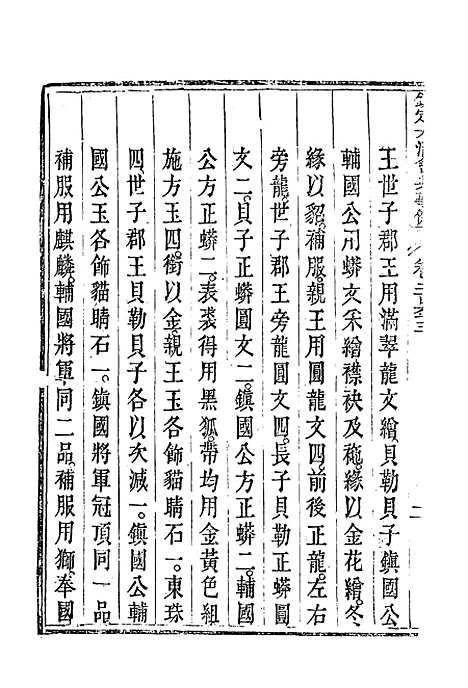 王世子郡王用滿翠龍文繪貝勒貝子鎭國公
輔國公用蟒文采繪襟袂及裾緣以金花繪冬
緣以貂補服親王用圓龍文四前後正龍左右
旁龍世子郡王旁龍圓文四長子貝勒正蟒圓
文二貝子正蟒圓文二鎭國公方正蟒二輔國
公方正蟒二表裘得用黑狐帶均用金黃色組
施方玉四銜以金親王玉各飾貓睛石一東珠
四世子郡王貝勒貝子各以次減一鎭國公輔
國公玉各飾貓睛石一鎭國將軍冠頂同一品
補服用麒麟輔國將軍同二品補服用獅奉國